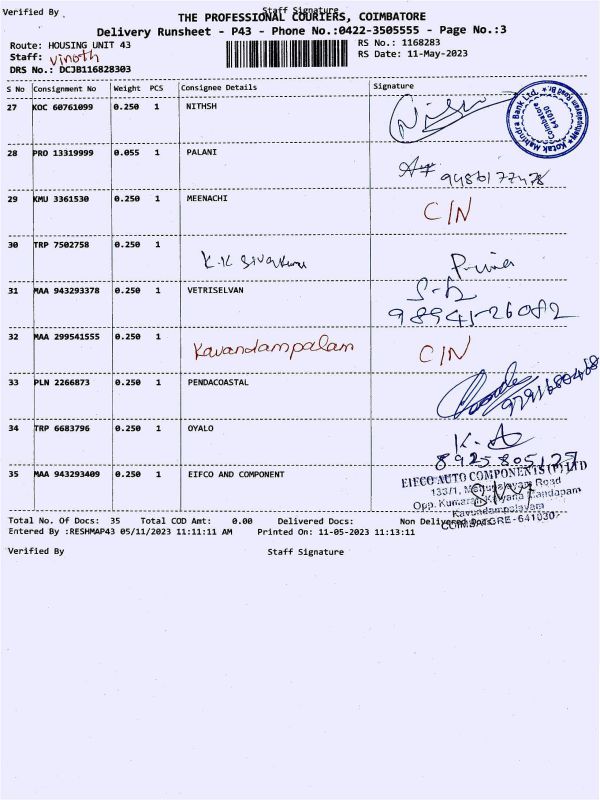 Verified By
Staff Signature
THE PROFESSIONAL COURIERS, COIMBATORE
Delivery Runsheet - P43 - Phone No.:0422-3505555 - Page No.:3
Route: HOUSING UNIT 43
RS No.: 1168283
Staff: Vinoth
RS Date: 11-May-2023
DRS No.: DCJB116828303
S No Consignment No Weight PCS Consignee Details Signature
27 KOC 60761099 0.250 1 NITHSH
Kotak Mahindra Bank Ltd.
Coimbatore
641030
28 PRO 13319999 0.055 1 PALANI
9486177478
29 KMU 3361530 0.250 1 MEENACHI C/N
30 TRP 7502758 0.250 1
31 MAA 943293378 0.250 1 VETRISELVAN
32 MAA 299541555 0.250 1 Kavandampalam C/N
33 PLN 2266873 0.250 1 PENDACOASTAL
34 TRP 6683796 0.250 1 OYALO
35 MAA 943293409 0.250 1 EIFCO AND COMPONENT
EIFCO AUTO COMPONENTS (P) LTD
133/1, Road
Opp. Kumaran Kalyana Mandapam
Kavundampalayam
COIMBATORE-641030
Total No. Of Docs: 35 Total COD Amt: 0.00 Delivered Docs: Non Delivered Docs:
Entered By :RESHMAP43 05/11/2023 11:11:11 AM Printed On: 11-05-2023 11:13:11
Verified By Staff Signature